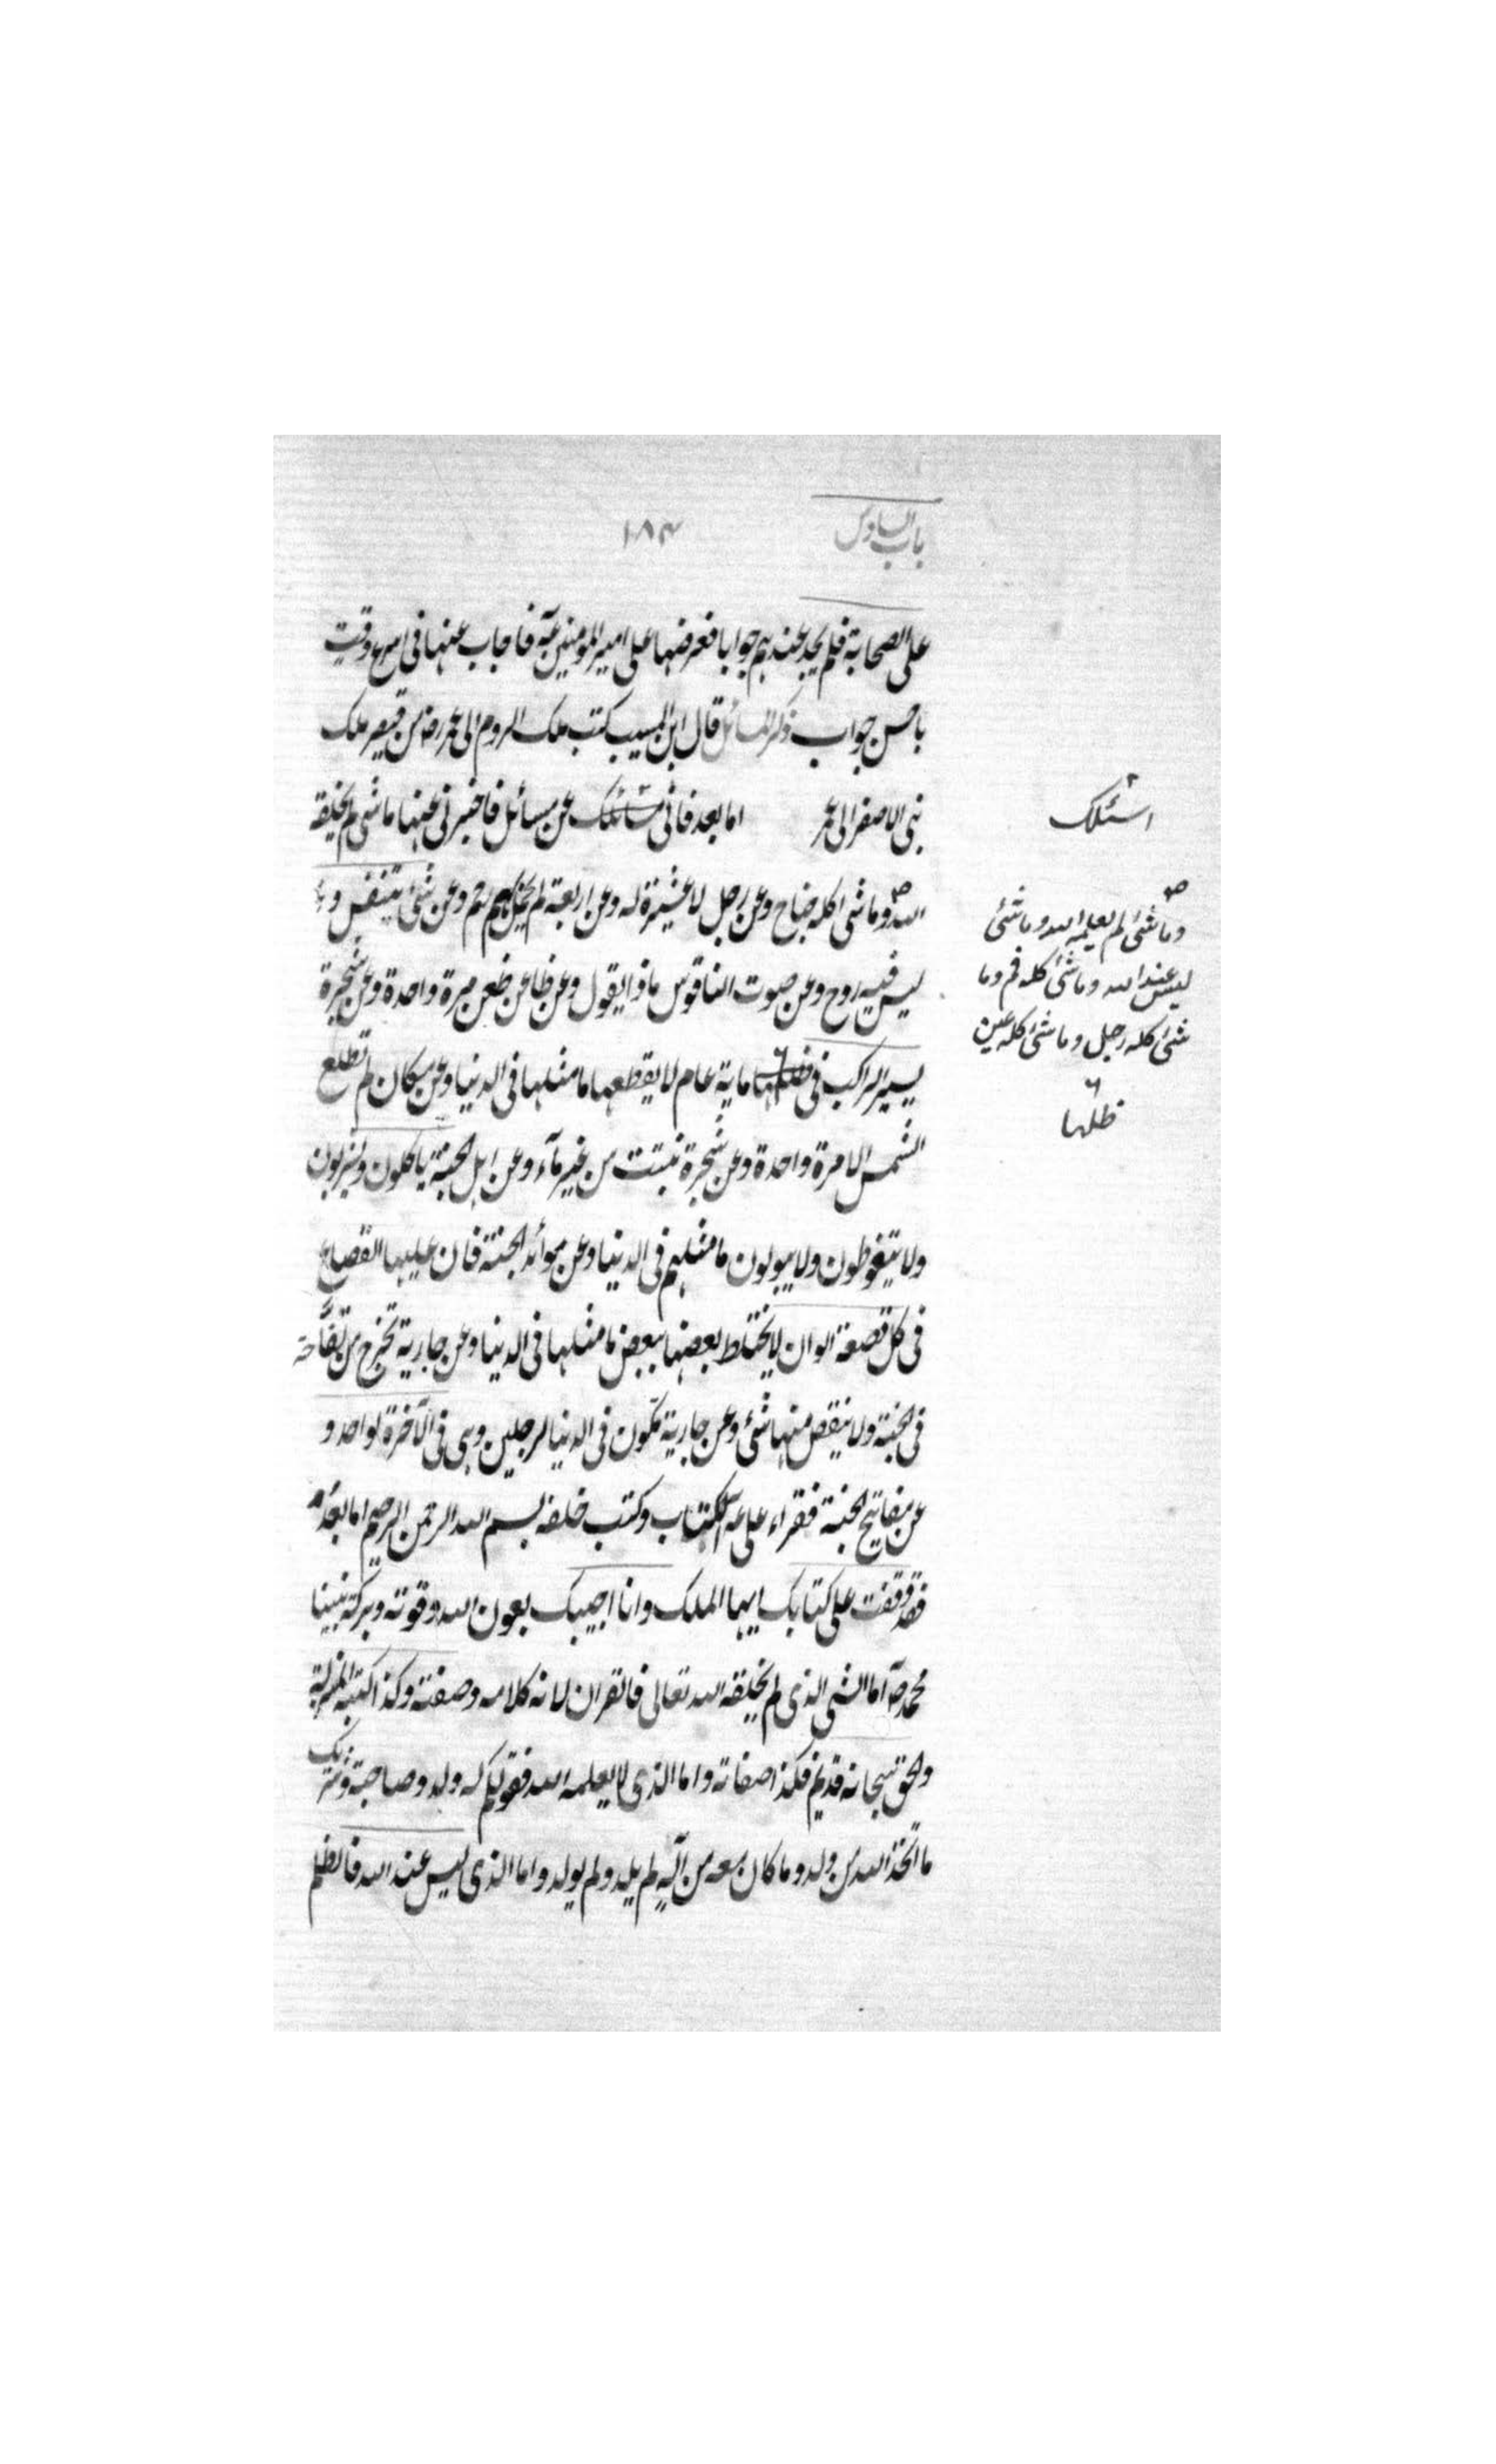 باب السادس
١٨٣
على الصحابة فلم يجد عندهم جوابا فعرضها على امير المومنين عه فاجاب عنها فى اسرع وقت
باحسن جواب ذكر المسائل قال ابن المسيب كتب ملك الروم الى عمر رض من قيصر ملك
بنى الاصفر الى عمر اما بعد فانى مسائلك عن مسائل فاخبرنى عنها ما شى لم يخلقه
الله وما شى اكله جناح وعن رجل لا عشيرة له وعن اربعة لم تحمل بهم رحم وعن شئ يتنفس و
ليس فيه روح وعن صوت الناقوس ماذا يقول وعن ظاعن ظعن مرة واحدة وعن شجرة
يسير الراكب فى ظلها ماية عام لا يقطعها ما مثلها فى الدنيا وعن مكان لم تطلع
الشمس الا مرة واحدة وعن شجرة نبتت من غير مآء وعن اهل الجنة ياكلون ويشربون
ولا يتغوطون ولا يبولون ما مثلهم فى الدنيا وعن موائد الجنة فان عليها القصاع
فى كل قصعة الوان لا يختلط بعضها ببعض ما مثلها فى الدنيا وعن جارية تخرج من تفاحة
فى الجنة ولا ينقص منها شئ وعن جارية تكون فى الدنيا لرجلين وهى فى الآخرة لواحد و
عن مفاتيح الجنة فقراء على عه الكتاب وكتب خلفه بسم الله الرحمن الرحيم اما بعد
فقد وقفت على كتابك ايها الملك وانا اجيبك بعون الله وقوته وبركة نبينا
محمد صه اما الشى الذى لم يخلقه الله تعالى فالقران لانه كلامه وصفته وكذا كتبه المنزلة
والحق سبحانه قديم فكذا صفاته واما الذى لا يعلمه الله فقولكم له ولد وصاحبة وشريك
ما اتخذ الله من ولد وما كان معه من اله لم يلد ولم يولد واما الذى ليس عند الله فالظلم
اسئلك
وما شئ لم يعلمه الله وما شئ
ليس عند الله وما شئ كله فم وما
شئ كله رجل وما شئ كله عين
ظلها